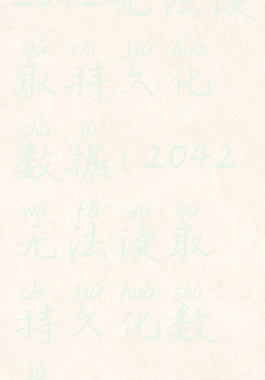 2042无法读
qǔ chí jiǔ huà
取持久化
shù jù
数据(2042
wú fǎ dú qǔ
无法读取
chí jiǔ huà shù
持久化数
jù